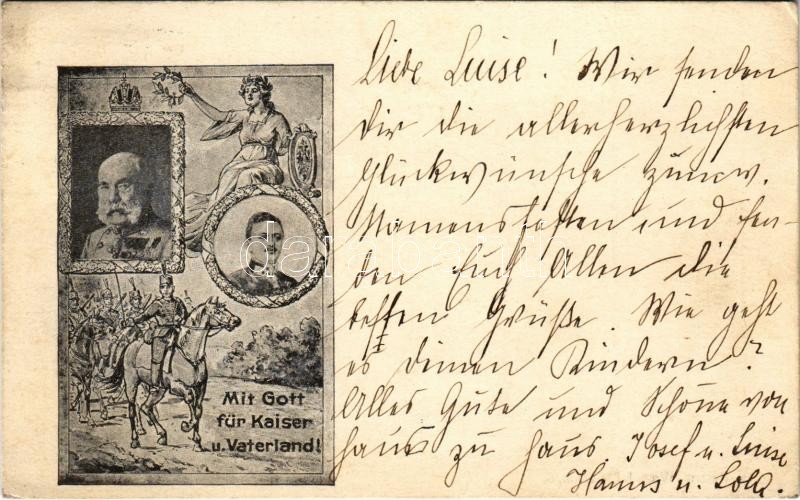 Liebe Luise! Wir senden
dir die allerherzlichsten
Glückwünsche zum w.
Namensfesten und sen-
den Euch Allen die
besten Grüße. Wie geht
es deinen Kindern?
Alles Gute und Schöne von
Haus zu Haus. Josef u. Luise
Hanns u. Lola.
Mit Gott
für Kaiser
u. Vaterland!